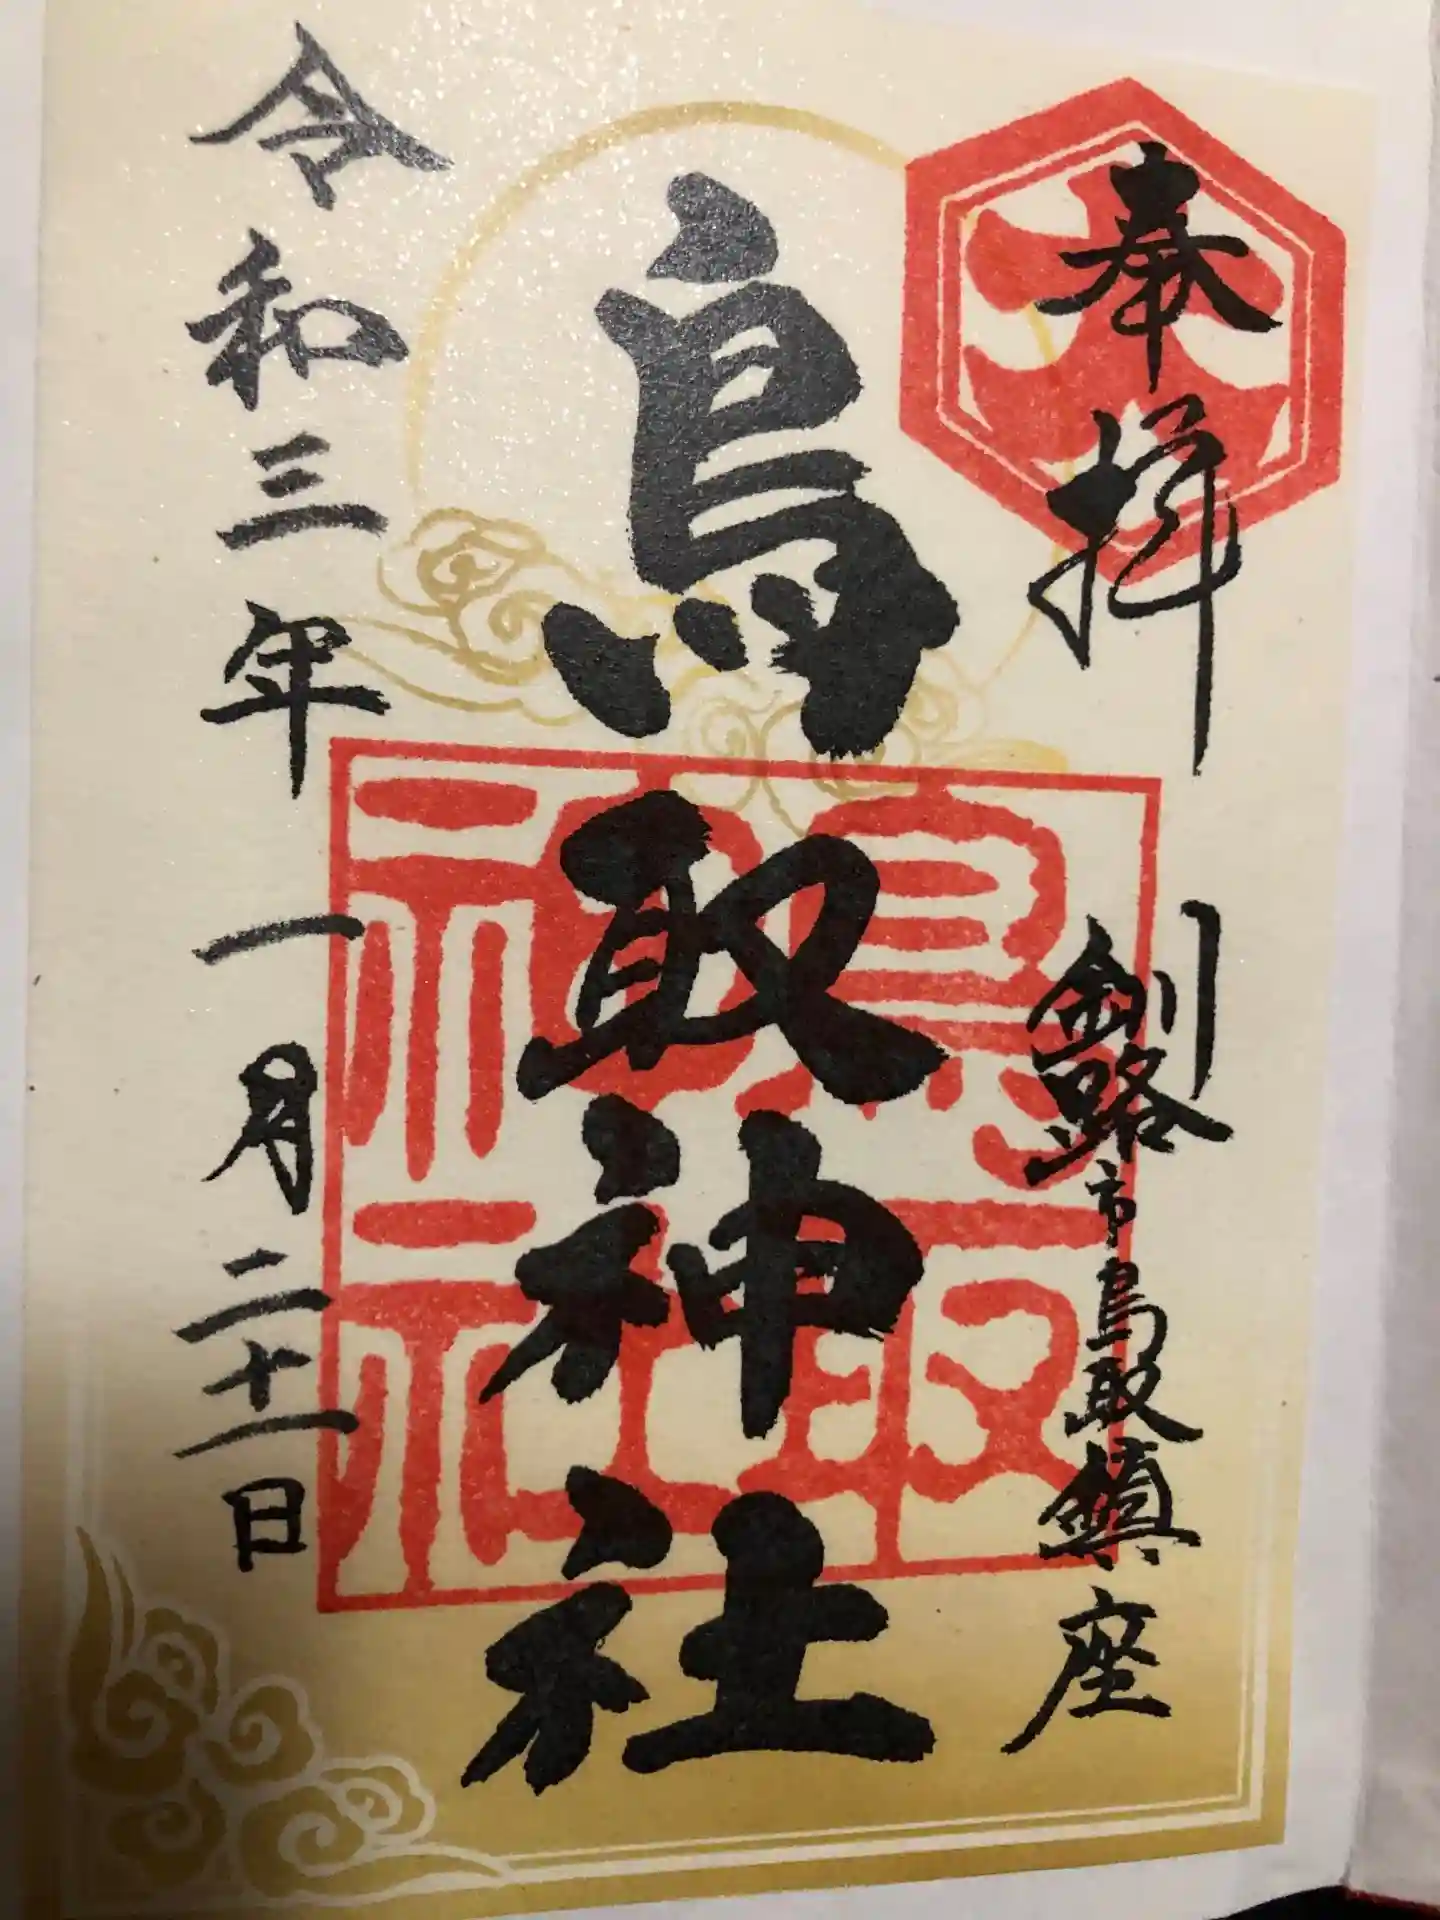 奉拝
釧路市鳥取鎮座
鳥取神社
鳥取神社
令和三年一月二十一日